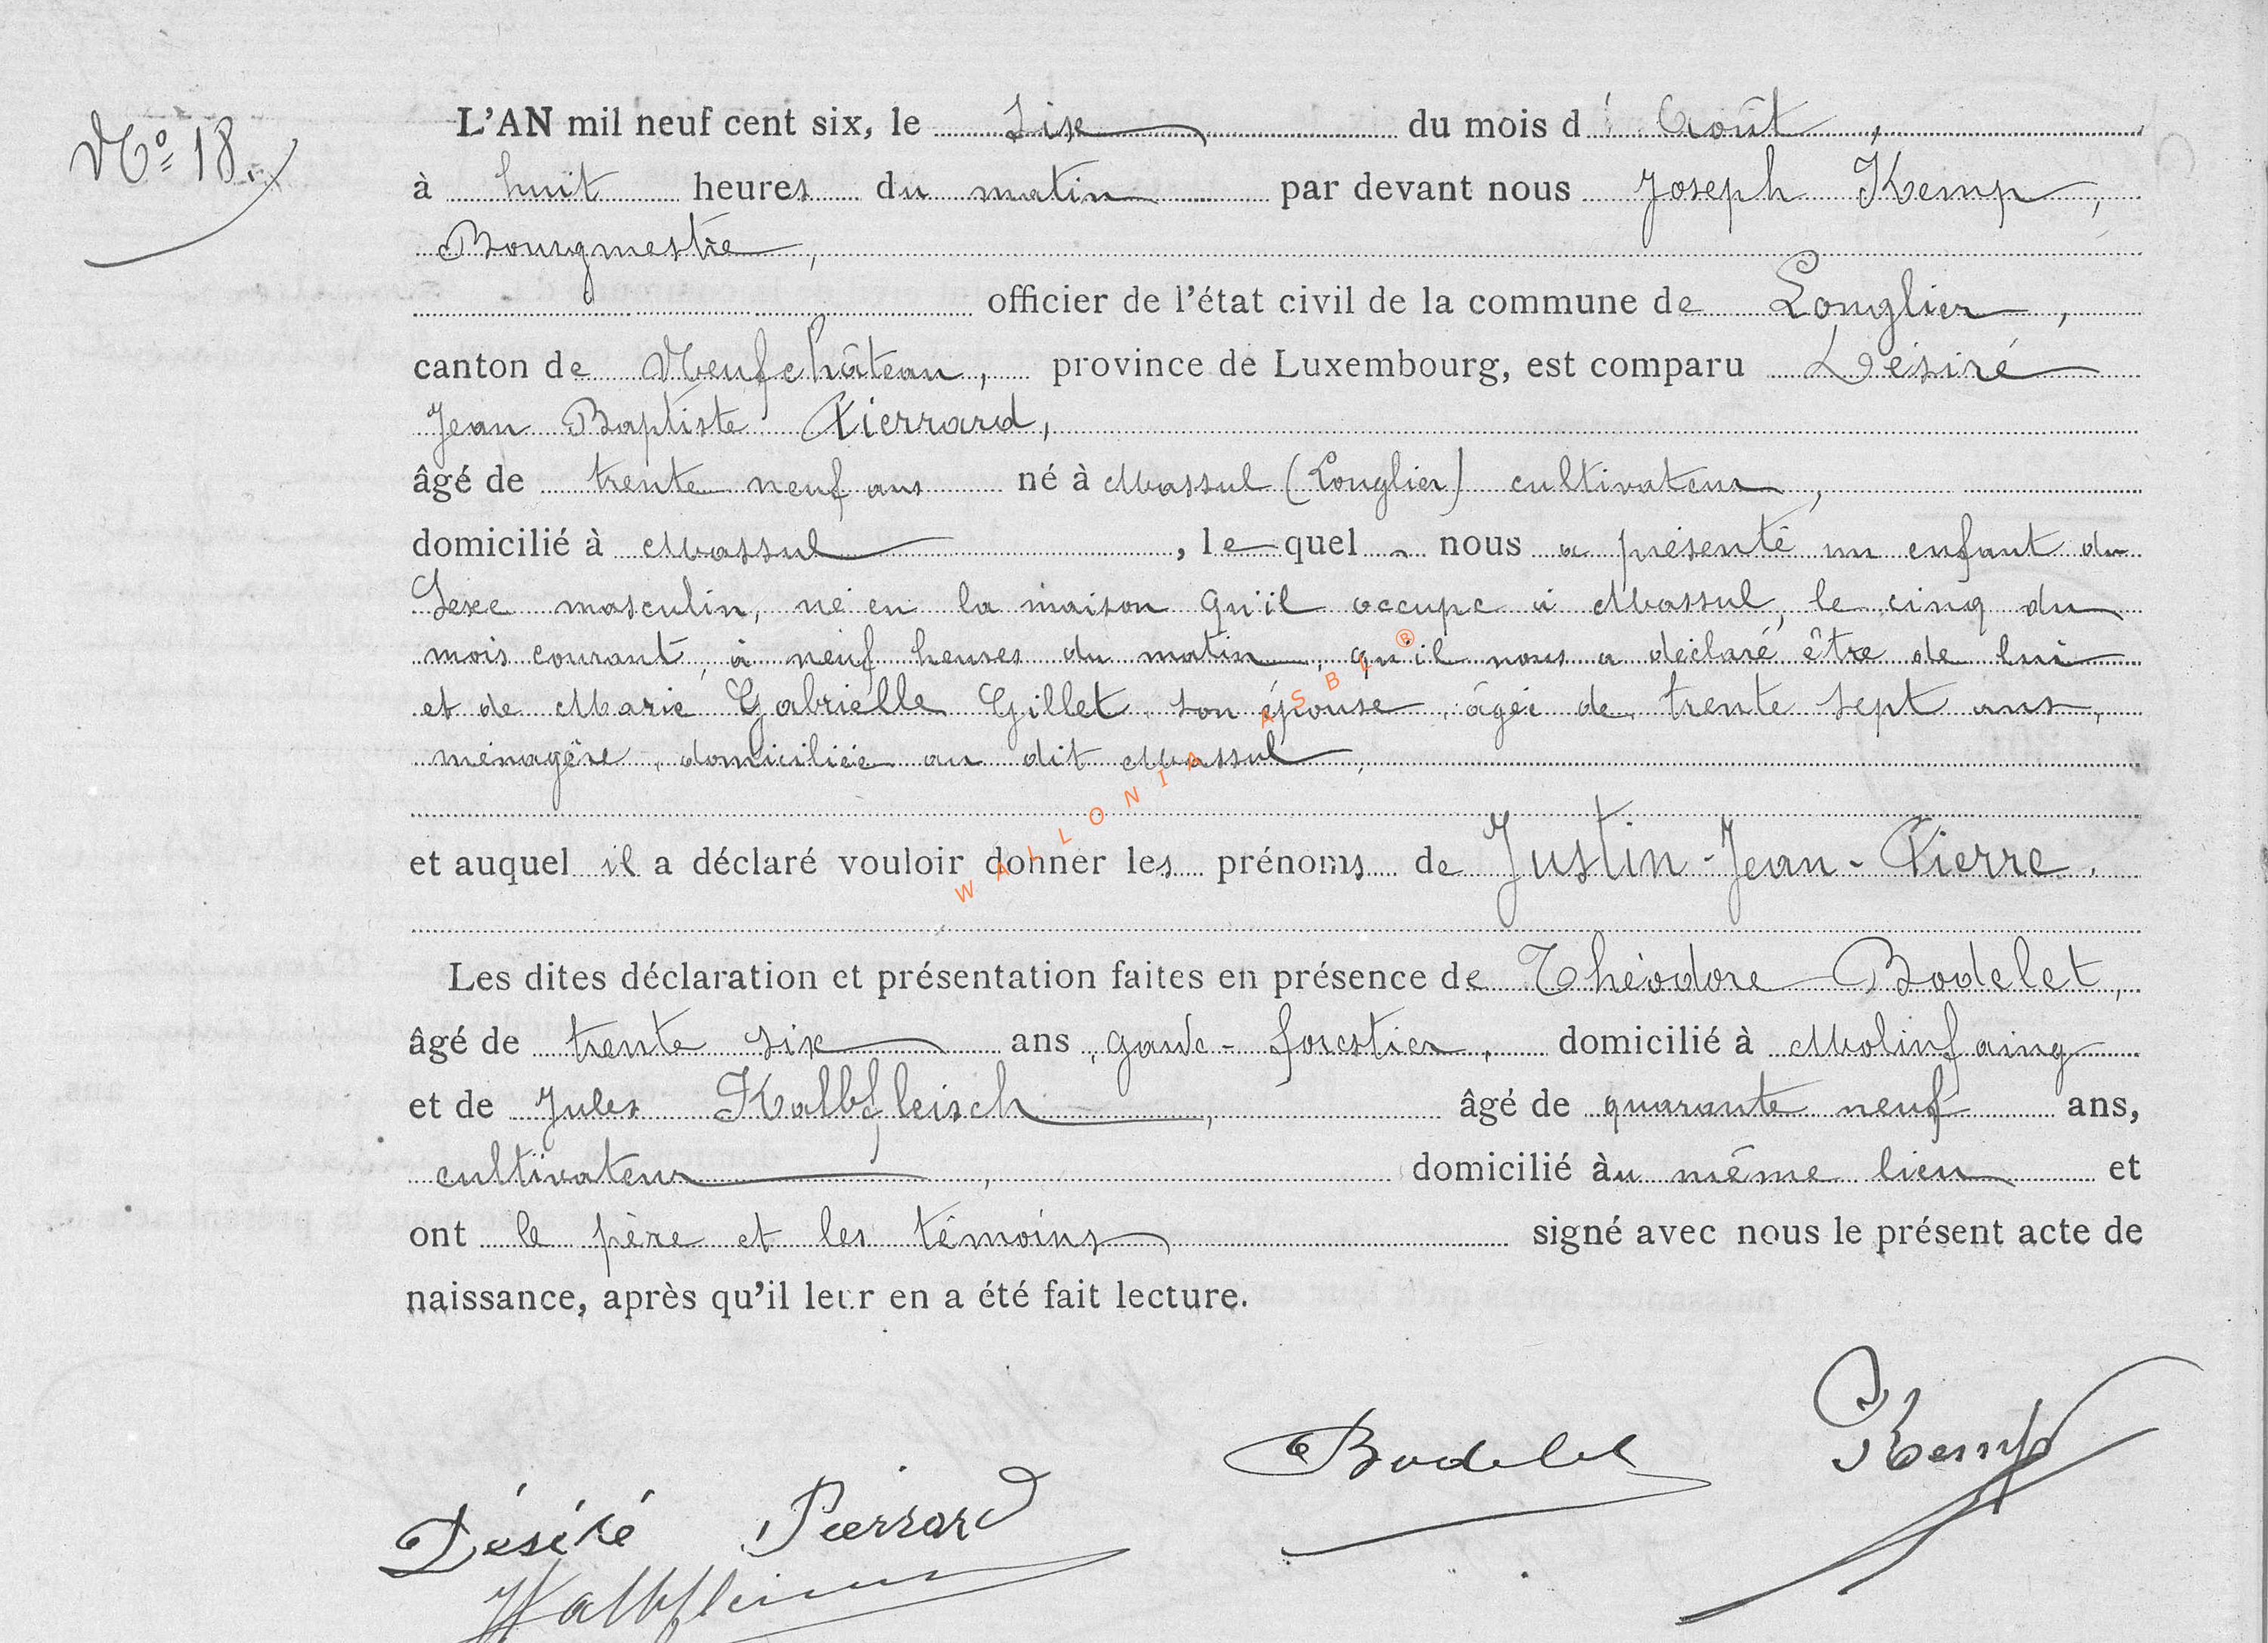 N° 18.
L'AN mil neuf cent six, le Six du mois d'Août,
à huit heures du matin par devant nous Joseph Kemp,
Bourgmestre,
officier de l'état civil de la commune de Longlier,
canton de Neufchâteau, province de Luxembourg, est comparu Désiré
Jean Baptiste Pierrard,
âgé de trente neuf ans né à Massul (Longlier) cultivateur,
domicilié à Massul, lequel nous a présenté un enfant du
Sexe masculin, né en la maison qu'il occupe à Massul, le cinq du
mois courant, à neuf heures du matin, qu'il nous a déclaré être de lui
et de Marie Gabrielle Gillet, son épouse, âgée de trente sept ans,
ménagère, domiciliée au dit Massul,
et auquel il a déclaré vouloir donner les prénoms de Justin-Jean-Pierre.
Les dites déclaration et présentation faites en présence de Théodore Bodelet,
âgé de trente six ans, garde-forestier, domicilié à Molinfaing
et de Jules Kalbfleisch, âgé de quarante neuf ans,
cultivateur, domicilié àu même lieu et
ont le père et les témoins signé avec nous le présent acte de
naissance, après qu'il leur en a été fait lecture.
Bodelet Kemp
Désiré Pierrard
Kalbfleisch
WALLONIA ASBL ®